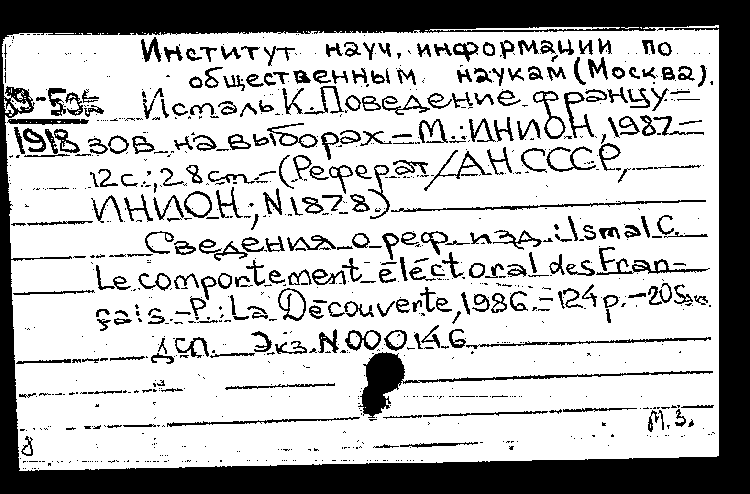 Институт науч. информации по
общественным наукам (Москва).
89-50к Исмаль К. Поведение францу-
1918 зов на выборах. - М.: ИНИОН, 1987.-
12с.; 28 cm. - (Реферат / АН СССР,
ИНИОН; N 1878)
Сведения о реф. изд.: Ismal C.
Le comportement électoral des Fran-
çais. - P.: La Découverte, 1986. - 124 p. - 205экз.
ДСП. Экз. N 000146.
М.З.
8